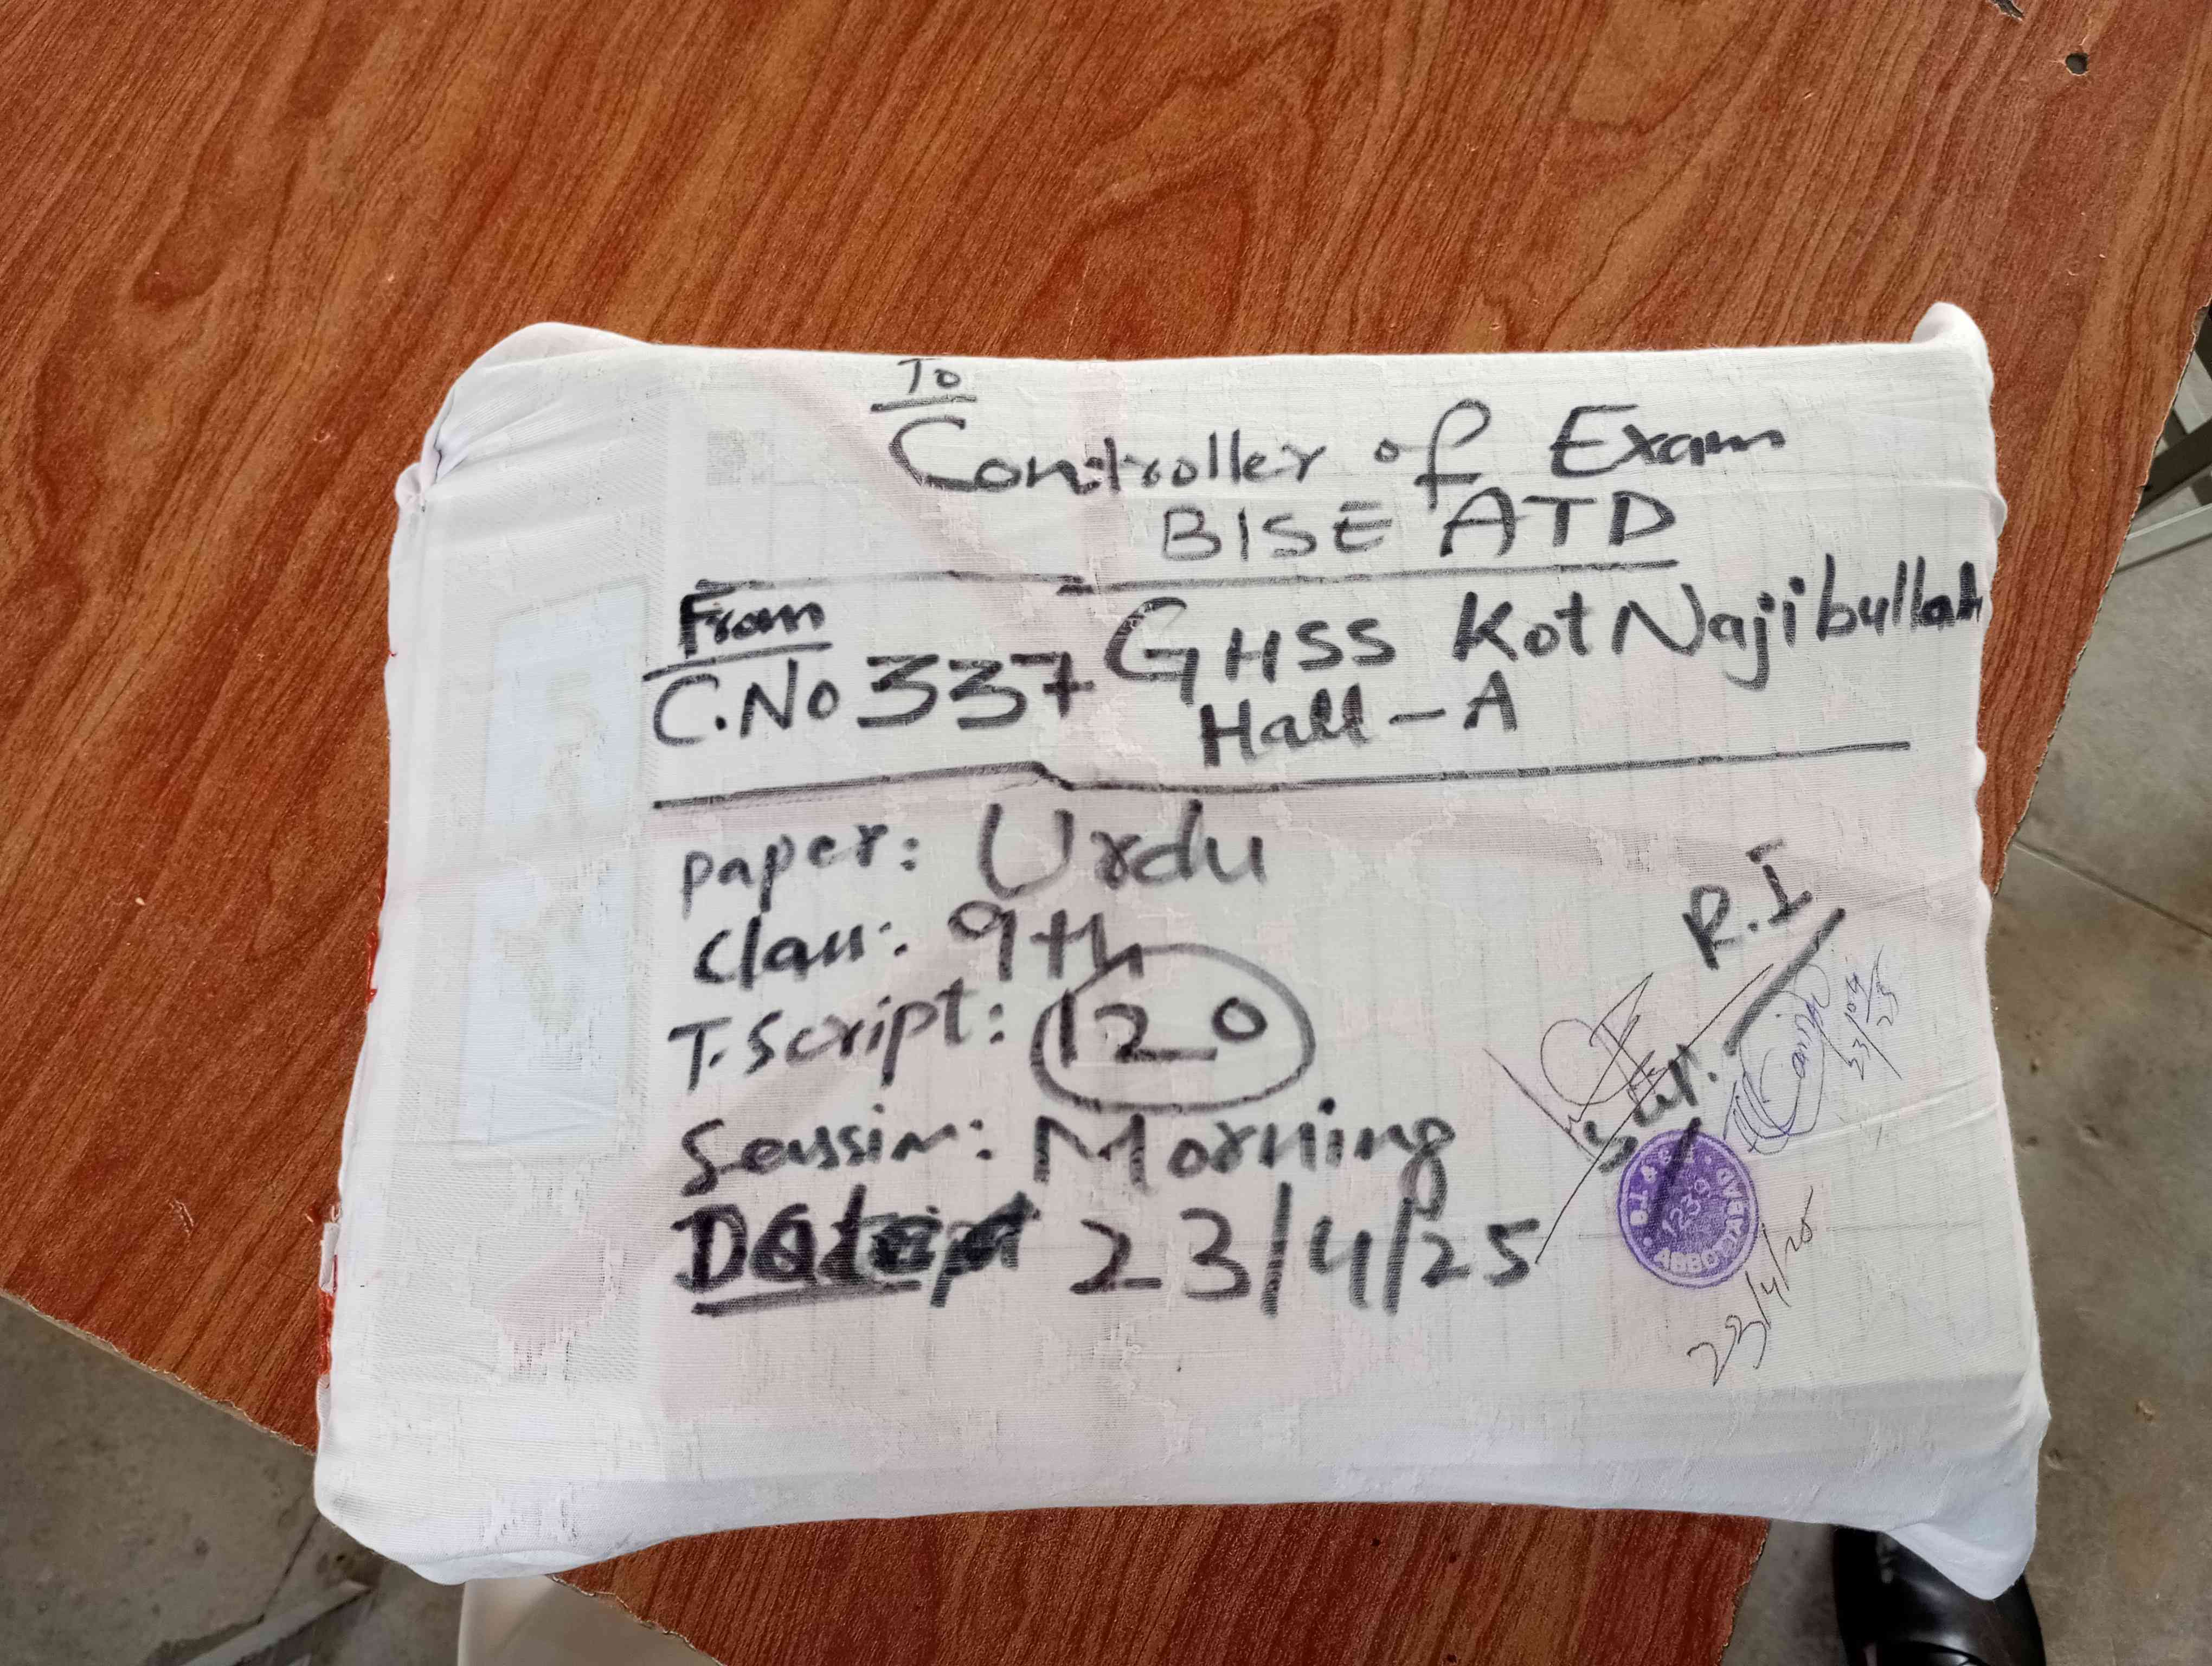 To
Controller of Exam
BISE ATD
From
C.No 337 GHSS Kot Najibullah
Hall - A
Paper: Urdu
Class: 9th
T.Script: 120
Session: Morning
Date 23/4/25
R.I
Sup.
23/04/25
B.I & S.E.
1239
ABBOTTABAD
23/4/25